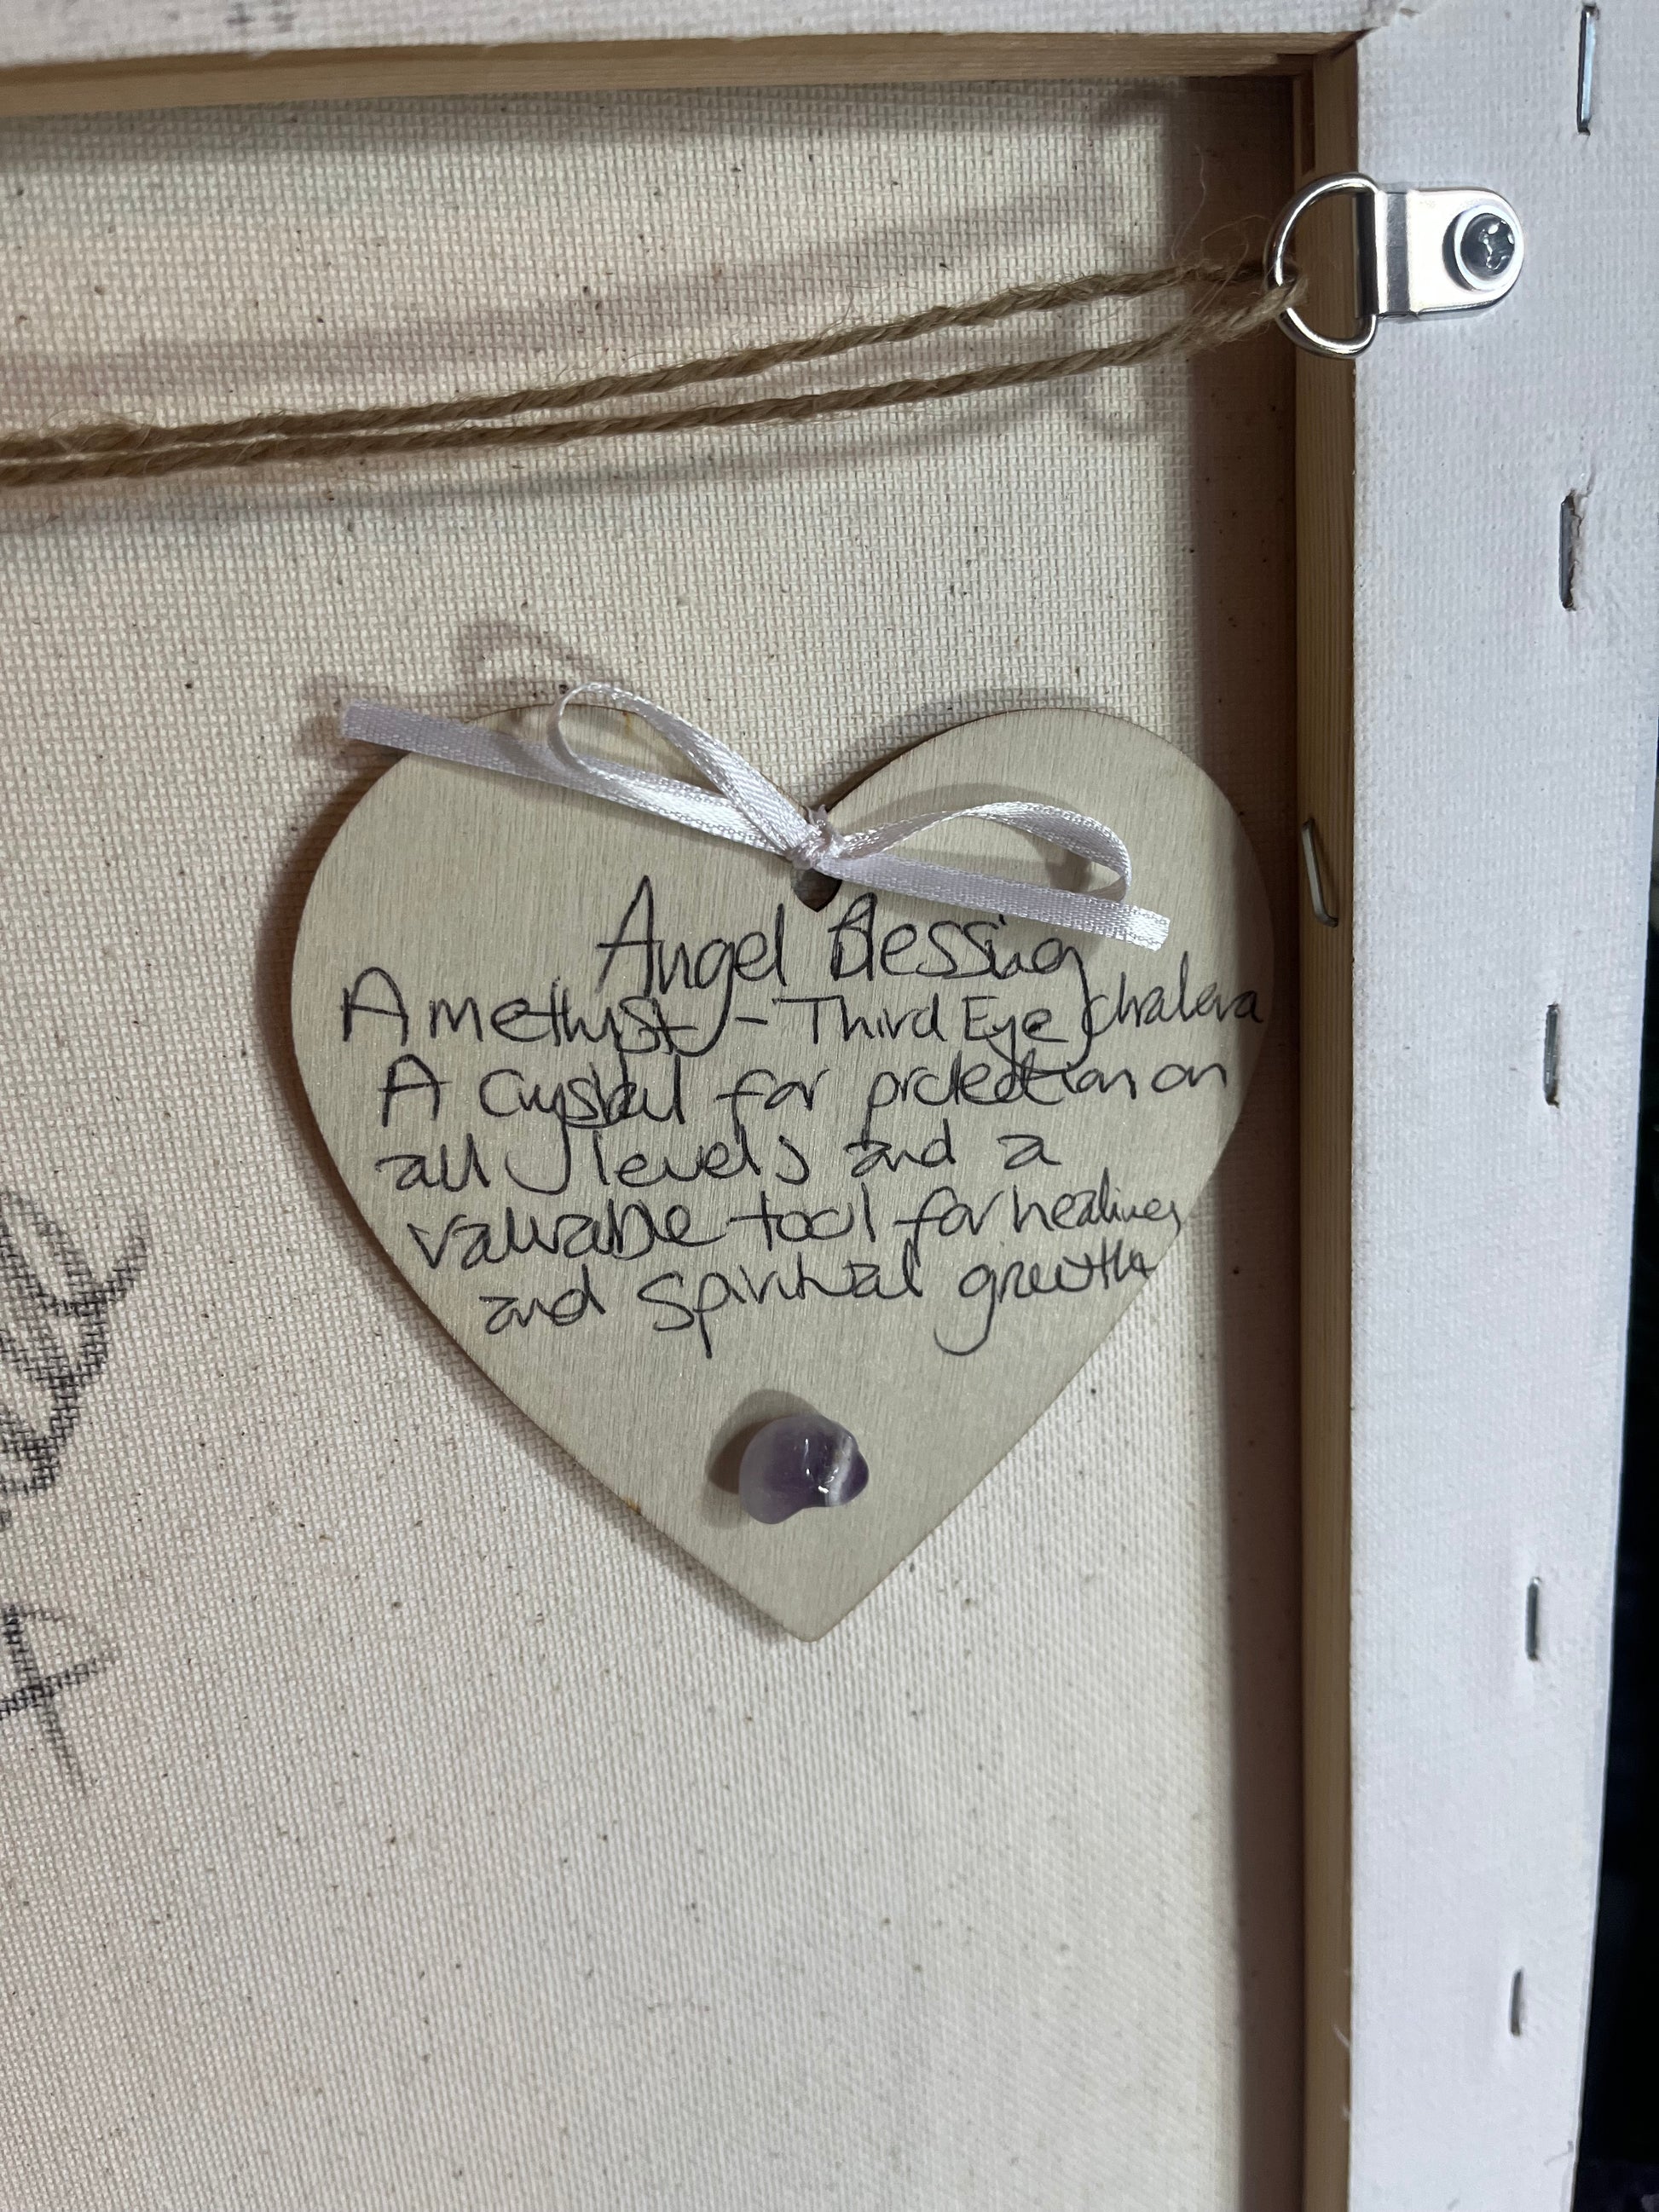 Angel Blessing
Amethyst - Third Eye Chakra
A Crystal for protection on
all levels and a
valuable tool for healing
and Spiritual growth